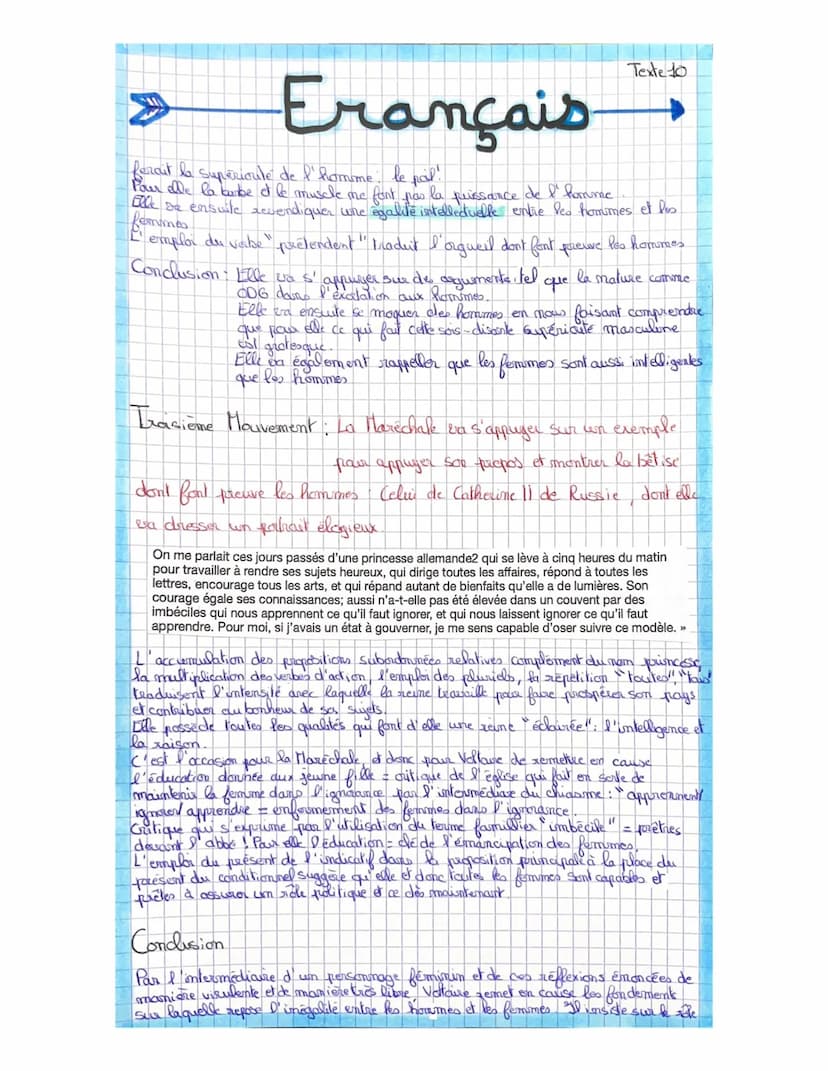 Texte 10
Français
ferait la supériorité de l'homme : le poil !
Pour elle la barbe et le muscle ne font pas la puissance de l'homme.
Elle va ensuite revendiquer une égalité intellectuelle entre les hommes et les
femmes
L'emploi du verbe "prétendent" traduit l'orgueil dont font preuve les hommes
Conclusion : Elle va s'appuyer sur des arguments tel que la nature comme
ODG dans l'éxcitation aux hommes.
Elle va ensuite se moquer des hommes en nous faisant comprendre
que pour elle ce qui fait cette sois-disante supériorité masculine
est grotesque.
Elle va également rappeller que les femmes sont aussi intelligentes
que les hommes
Troisième Mouvement : La Maréchale va s'appuyer sur un exemple
pour appuyer son propos et montrer la bêtise
dont font preuve les hommes : Celui de Catherine II de Russie, dont elle
va dresser un portrait élogieux.
On me parlait ces jours passés d'une princesse allemande2 qui se lève à cinq heures du matin
pour travailler à rendre ses sujets heureux, qui dirige toutes les affaires, répond à toutes les
lettres, encourage tous les arts, et qui répand autant de bienfaits qu'elle a de lumières. Son
courage égale ses connaissances; aussi n'a-t-elle pas été élevée dans un couvent par des
imbéciles qui nous apprennent ce qu'il faut ignorer, et qui nous laissent ignorer ce qu'il faut
apprendre. Pour moi, si j'avais un état à gouverner, je me sens capable d'oser suivre ce modèle. »
L'accumulation des propositions subordonnées relatives complément du nom princesse,
la multiplication des verbes d'action, l'emploi des pluriels, la répétition "toutes", "tous"
traduisent l'intensité avec laquelle la reine travaille pour faire prospérer son pays
et contribuer au bonheur de ses sujets.
Elle possède toutes les qualités qui font d'elle une reine "éclairée" : l'intelligence et
la raison.
C'est l'occasion pour la Maréchale, et donc pour Voltaire de remettre en cause
l'éducation donnée aux jeune fille = critique de l'église qui fait en sorte de
maintenir la femme dans l'ignorance par l'intermédiaire du chiasme : "apprennent/
ignorer/ apprendre = enfermement des femmes dans l'ignorance.
Critique qui s'exprime par l'utilisation du terme famillier "imbécile" = prêtres
devant l'abbé ! Pour elle l'éducation = clé de l'émancipation des femmes.
L'emploi du présent de l'indicatif dans la proposition principale à la place du
présent du conditionnel suggère qu'elle et donc toutes les femmes sont capables et
prêtes à assurer un rôle politique et ce dès maintenant.
Conclusion
Par l'intermédiaire d'un personnage féminin et de ces réflexions énoncées de
manière virulente et de manière très libre, Voltaire remet en cause les fondements
sur laquelle repose l'inégalité entre les hommes et les femmes. Il insiste sur le rôle